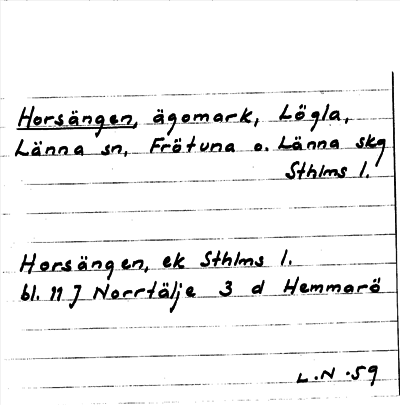 Horsängen, ägomark, Lögla,
Länna sn, Frötuna o. Länna skg
Sthlms l.
Horsängen, ek Sthlms l.
bl. 11 J Norrtälje 3 d Hemmarö
L.N.59